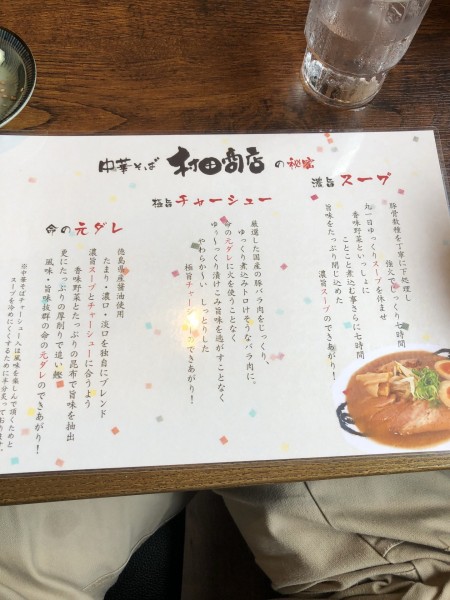 中華そば 村田商店 の秘密
濃旨スープ
豚骨数種を丁寧に下処理し
強火でじっくり七時間
丸一日ゆっくりスープを休ませ
香味野菜といっしょに
ことこと煮込む事さらに七時間
旨味をたっぷり閉じ込めた
濃旨スープのできあがり!
極旨チャーシュー
厳選した国産の豚バラ肉をじっくり、
ゆっくり煮込みトロけそうなバラ肉に。
命の元ダレに火を使うことなく
ゆ〜っくり漬けこみ旨味を逃がすことなく
やわらかい しっとりした
極旨チャーシューのできあがり!
命の元ダレ
徳島県産醤油使用
たまり・濃口・淡口を独自にブレンド
濃旨スープとチャーシューに合うよう
香味野菜とたっぷりの昆布で旨味を抽出
更にたっぷりの厚削りで追い鰹
風味・旨味抜群の命の元ダレのできあがり!
※中華そばチャーシューハは風味を楽しんで頂くためと
スープを冷めにくくするために半分炙っております。